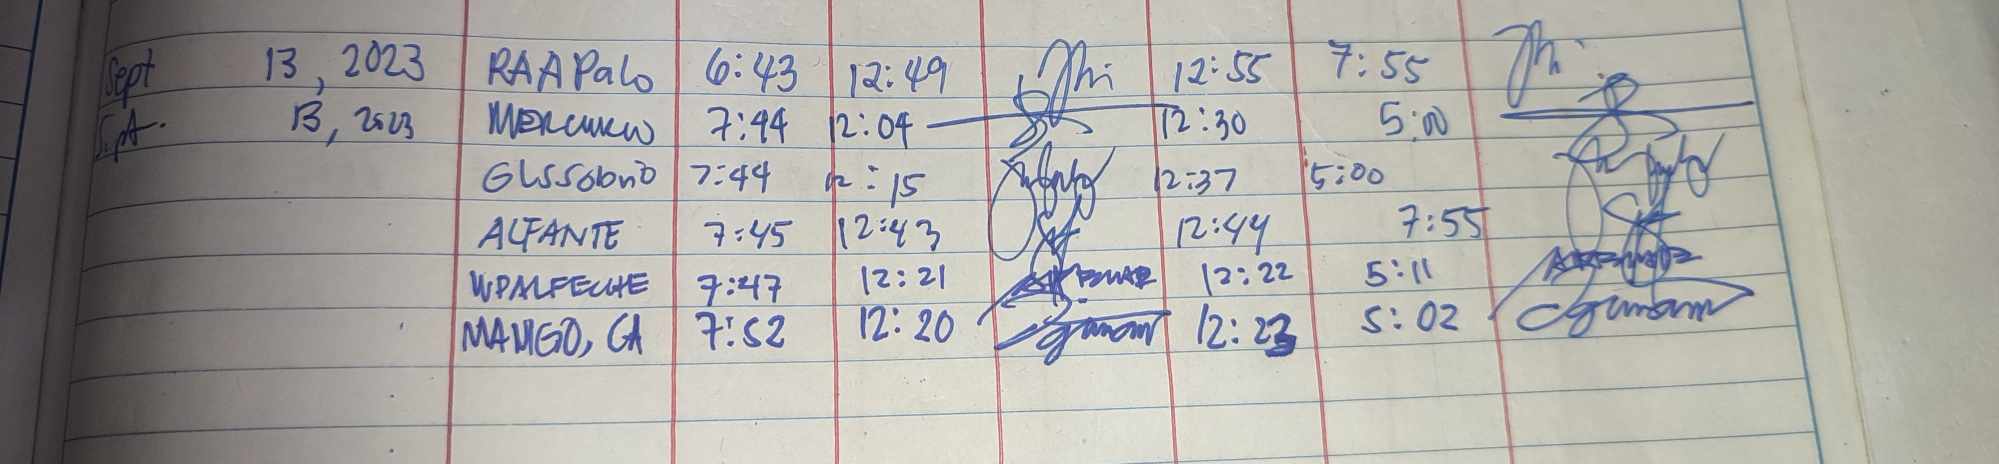 Sept 13, 2023 RAAPalo 6:43 12:49 12:55 7:55
Sept. 13, 2023 MERCURIO 7:44 12:04 12:30 5:00
GLSSobno 7:44 12:15 12:37 5:00
ALFANTE 7:45 12:43 12:44 7:55
WPALFECHE 7:47 12:21 12:22 5:11
MANGO, CA 7:52 12:20 12:23 5:02